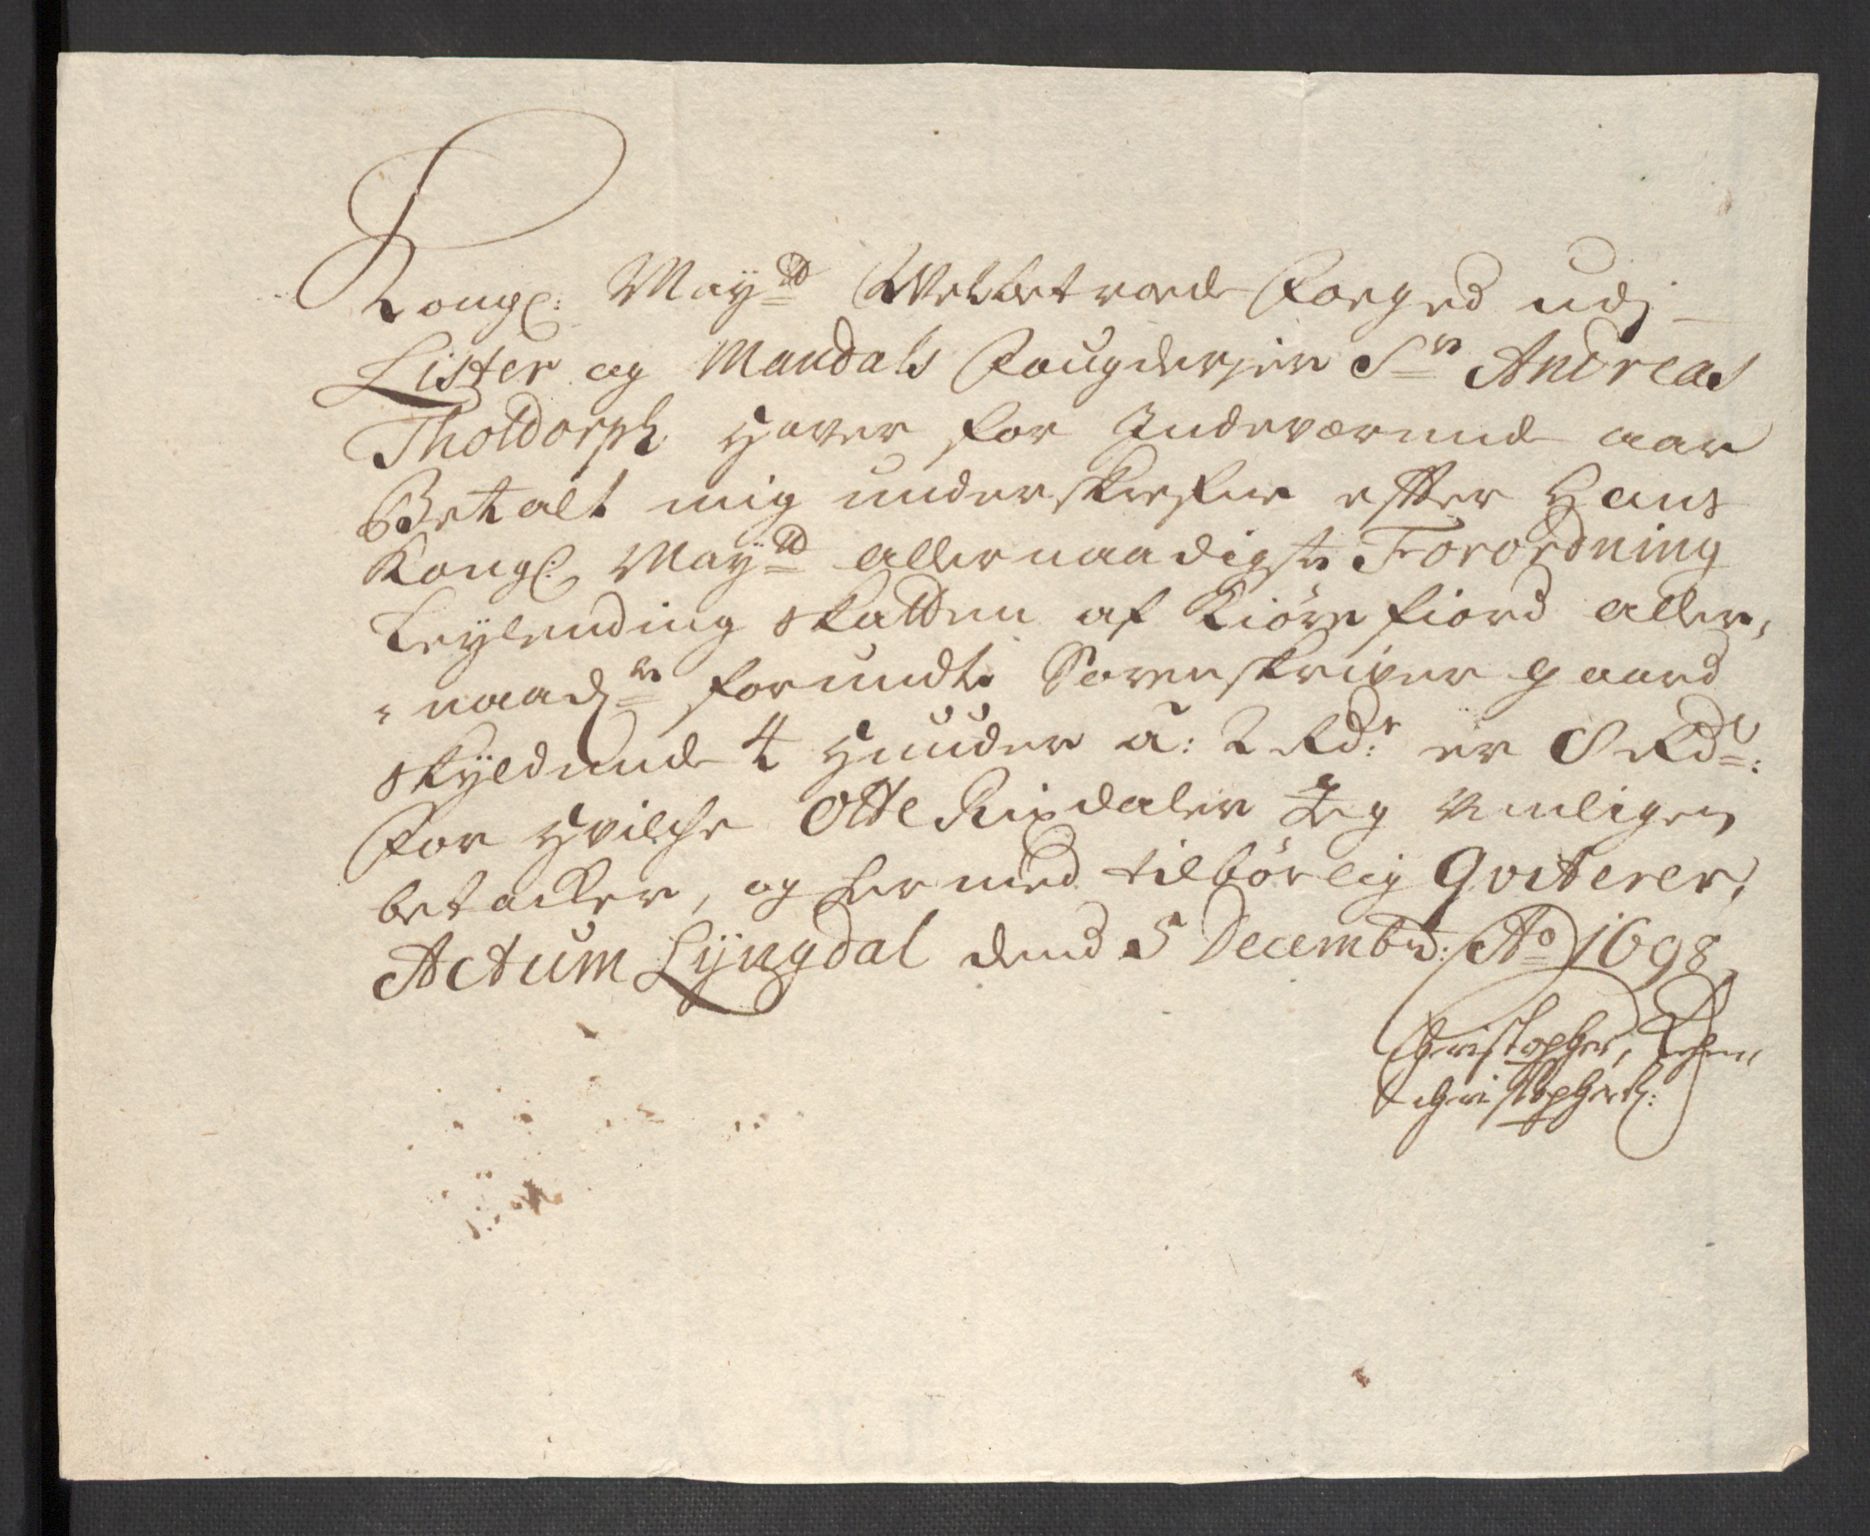 Kongl: May:tt Welbetroede Foeged udj
Lister og Mandals Fougderjer Sr Andreas
Tholdorph hever for Indeværende aar
Betalt mig underskrefne efter Hans
Kongl: May:tt allernaadigste Forordning
Leylending Skatten af Kiørrefiord aller,
naadr forundte Sorenskriver gaard
skyldende 4 huuder a: 2 Rdr er 8 Rdr:
For hvilche Otte Rixdaler Jeg venligen
betacker, og hermed tilbørlig Qviterer,
Actum Lyngdal dend 5 Decembr: Ao 1698
Christopher,
Christophers: